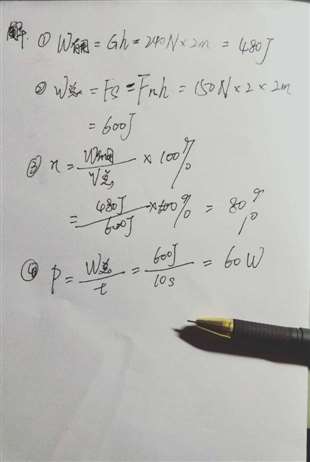 解: ① W有用 = Gh = 240N × 2m = 480J
② W总 = Fs = Fnh = 150N × 2 × 2m
= 600J
③ η = W有用/W总 × 100%
= 480J/600J × 100% = 80%
④ P = W总/t = 600J/10s = 60W